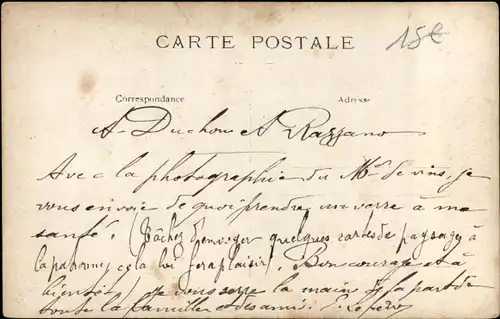 CARTE POSTALE
15€
Correspondance Adresse
A. Duchou A Razzano
Avec la photographie du Md de vins, je
vous envoie de quoi prendre un verre à ma
santé. (Tâchez d'envoyer quelques cartes de paysages à
la patronne, cela lui fera plaisir). Bon courage et à
bientôt, je vous serre la main de la part de
toute la famille et des amis.